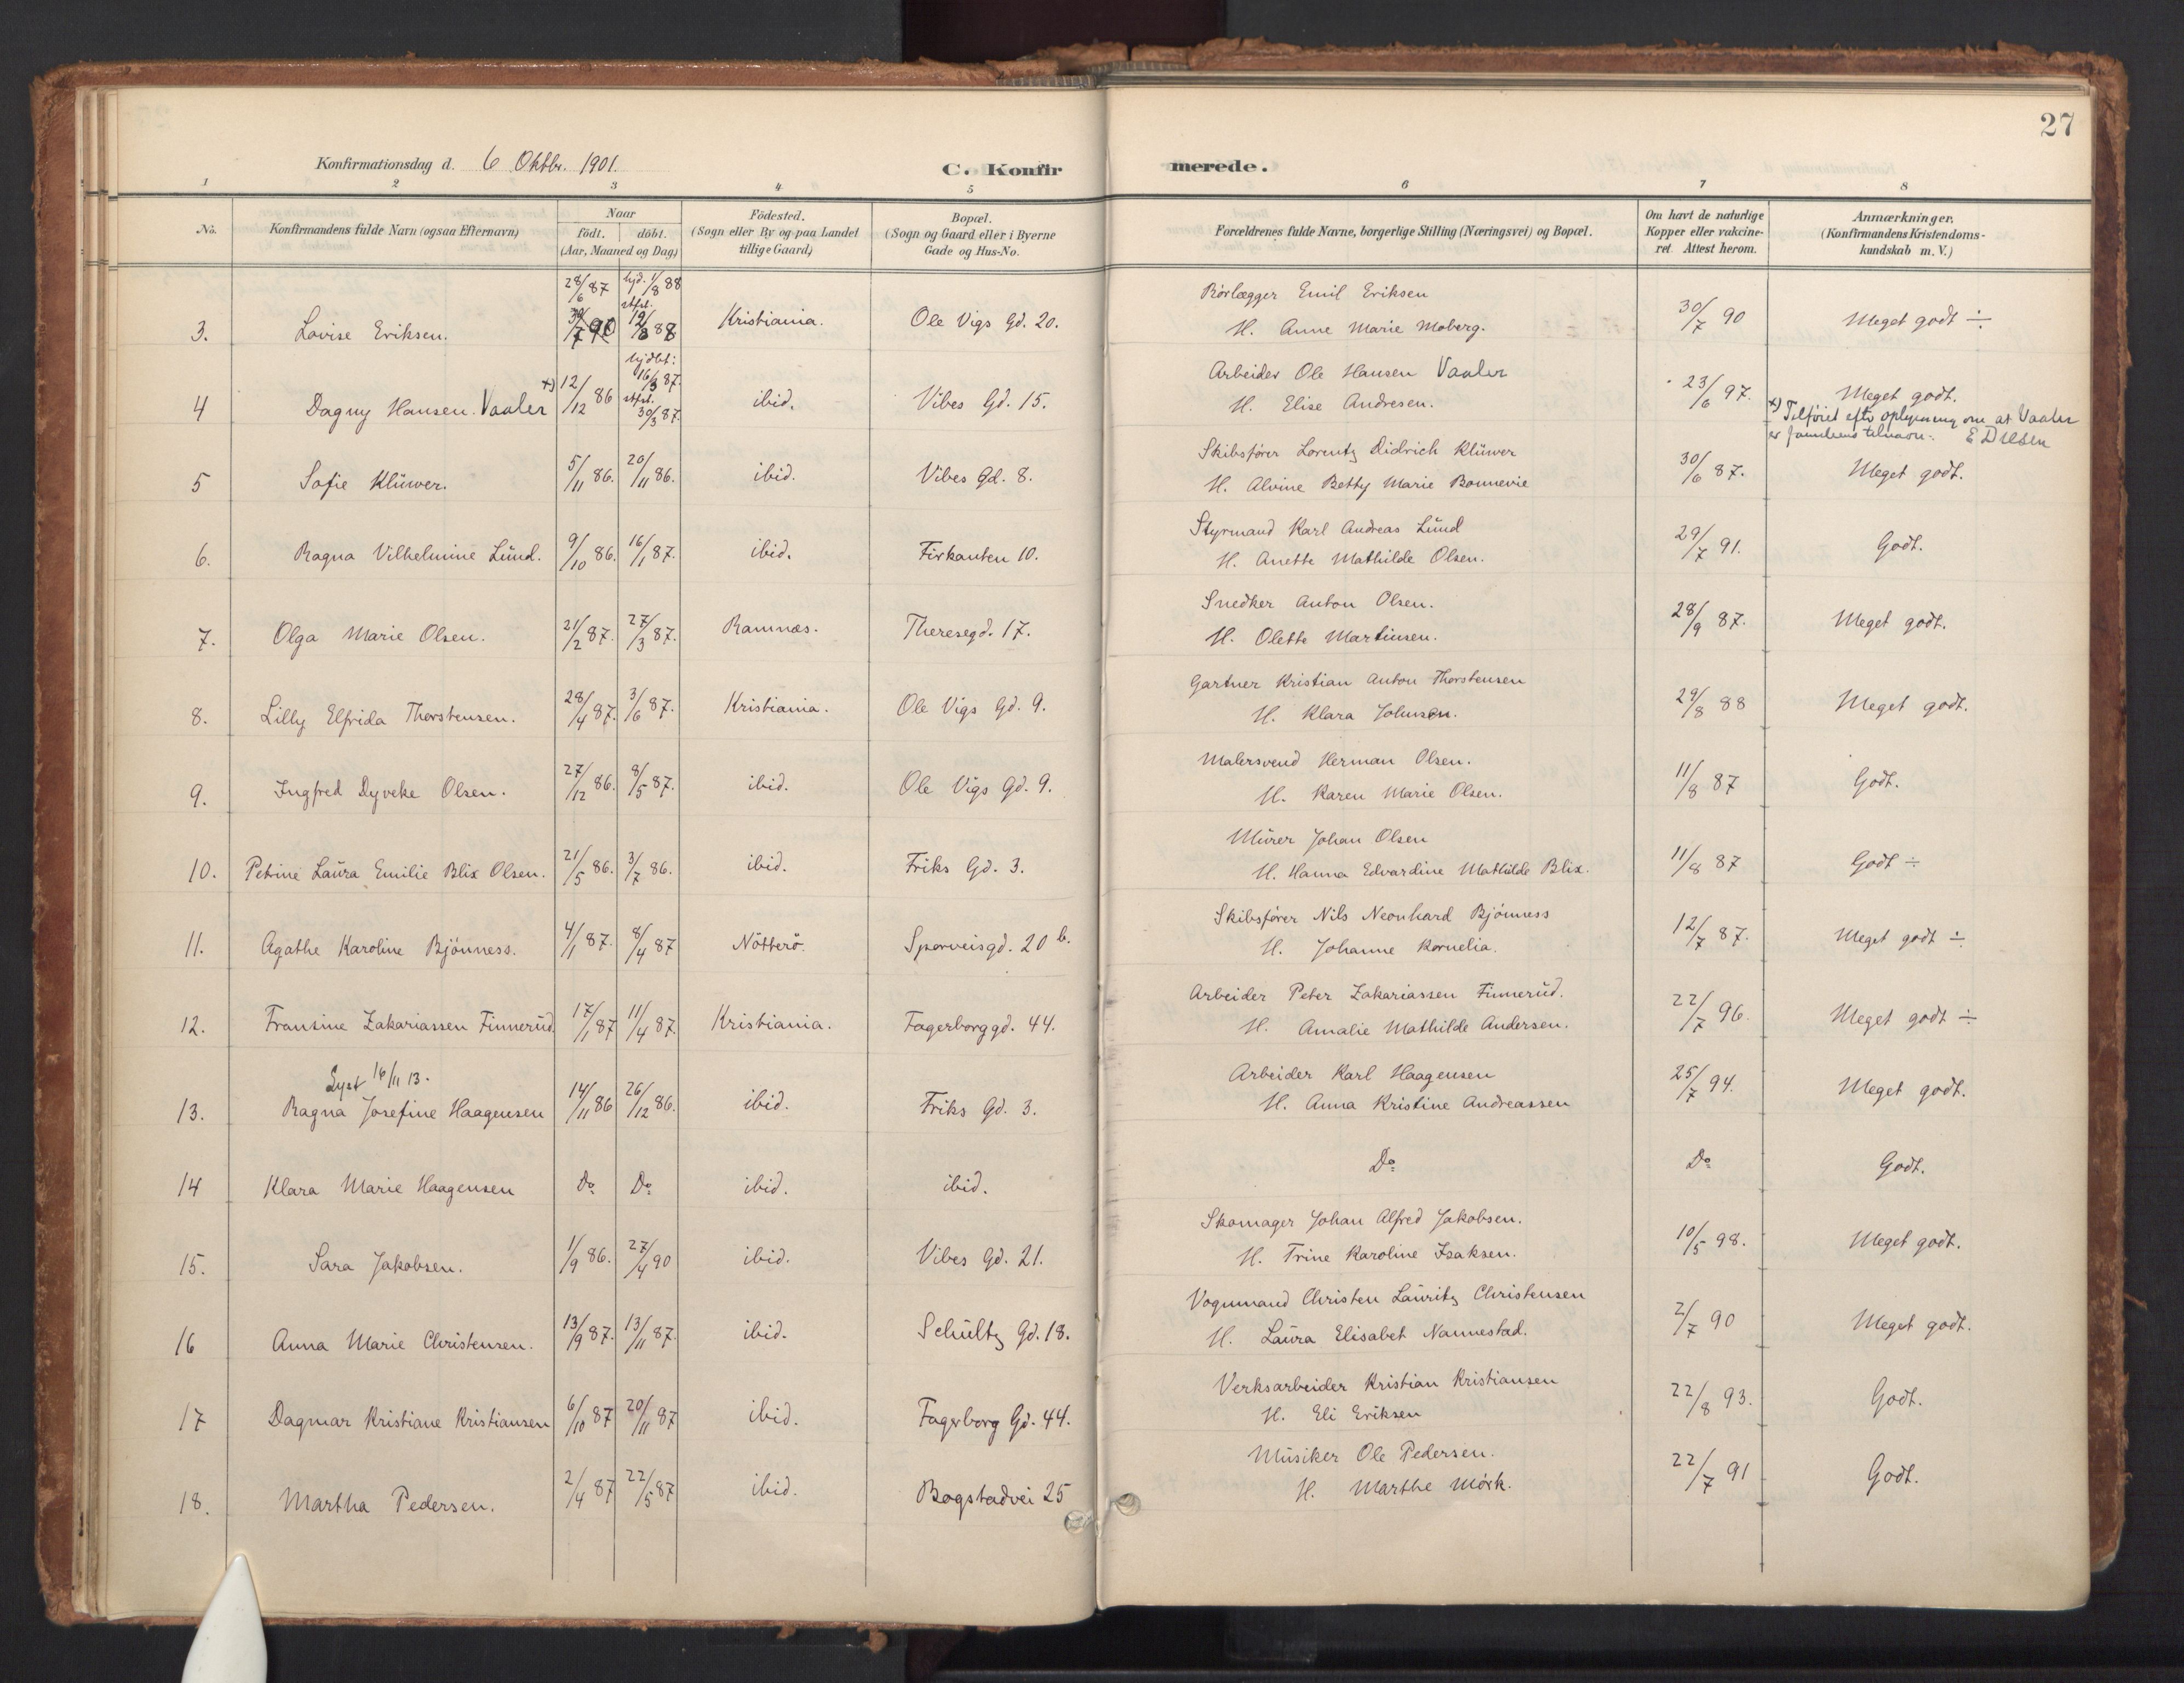 27
Konfirmationsdag d. 6 Oktbr. 1901.
C. Konfirmerede.
1 2 3 4 5 6 7 8
No.
Konfirmandens fulde Navn (ogsaa Efternavn)
Naar
födt. döbt.
(Aar, Maaned og Dag)
Födested.
(Sogn eller By og paa Landet
tillige Gaard)
Bopæl.
(Sogn og Gaard eller i Byerne
Gade og Hus-No.
Forældrenes fulde Navne, borgerlige Stilling (Næringsvei) og Bopæl.
Om havt de naturlige
Kopper eller vakcine-
ret. Attest herom.
Anmærkninger.
(Konfirmandens Kristendoms-
kundskab m. V.)
28/6 87 hjd. 1/8 88 Rörlægger Emil Eriksen
3. Lovise Eriksen. stfst. 88 Kristiania. Ole Vigs Gd. 20. H. Anne Marie Moberg. 30/7 90 Meget godt ÷
hjdbt: 16/3 87. Arbeider Ole Hansen Vaaler
4 Dagny Hansen. Vaaler x) 12/12 86 stfst. 30/3 87. ibid. Vibes Gd. 15. H. Elise Andresen. 23/6 97. Meget godt.
x) Tilföiet efter oplysning om at Vaaler
er familiens tilnavn.
Skibsförer Lorentz Didrich Klüwer
5 Sofie Klüwer. 5/11 86. 20/11 86. ibid. Vibes Gd. 8. H. Alvine Betty Marie Bonnevie 30/6 87. Meget godt.
Styrmand Karl Andreas Lund
6. Ragna Vilhelmine Lund. 9/10 86. 16/1 87. ibid. Firkanten 10. H. Anette Mathilde Olsen. 29/7 91. Godt.
Snedker Anton Olsen.
7. Olga Marie Olsen. 21/2 87. 27/3 87. Ramnæs. Theresegd. 17. H. Olette Martinsen. 28/9 87. Meget godt.
Gartner Kristian Anton Thorstensen
8. Lilly Elfrida Thorstensen. 28/4 87. 3/6 87. Kristiania. Ole Vigs Gd. 9. H. Klara Johnsen. 29/8 88 Meget godt.
Malersvend Herman Olsen.
9. Ingfred Dyveke Olsen. 27/12 86. 8/5 87. ibid. Ole Vigs Gd. 9. H. Karen Marie Olsen. 11/8 87 Godt.
Murer Johan Olsen
10. Petrine Laura Emilie Blix Olsen. 21/5 86. 3/7 86. ibid. Friks Gd. 3. H. Hanna Edvardine Mathilde Blix. 11/8 87 Godt ÷
Skibsförer Nils Neonhard Bjönness
11. Agathe Karoline Bjönness. 4/1 87. 8/4 87 Nötterö. Sporveisgd. 20 b. H. Johanne Kornelia. 12/7 87. Meget godt ÷
Arbeider Peter Zakariassen Finnerud.
12. Fransine Zakariassen Finnerud. 17/1 87 11/4 87. Kristiania. Fagerborggd. 44. H. Amalie Mathilde Andersen. 22/7 96. Meget godt ÷
Lyst 16/11 13. Arbeider Karl Haagensen
13. Ragna Josefine Haagensen 14/11 86 26/12 86. ibid. Friks Gd. 3. H. Anna Kristine Andreassen 25/7 94. Meget godt.
14 Klara Marie Haagensen Do Do ibid. ibid. Do Do Godt.
Skomager Johan Alfred Jakobsen.
15. Sara Jakobsen. 1/9 86. 27/4 90 ibid. Vibes Gd. 21. H. Trine Karoline Isaksen. 10/5 98. Meget godt.
Vognmand Christen Lauritz Christensen
16 Anna Marie Christensen. 13/9 87. 13/11 87. ibid. Schultz Gd. 18. H. Laura Elisabet Nannestad. 2/7 90 Meget godt.
Verksarbeider Kristian Kristiansen
17 Dagmar Kristiane Kristiansen 6/10 87 20/11 87 ibid. Fagerborg Gd. 44. H. Eli Eriksen 22/8 93. Godt.
Musiker Ole Pedersen.
18. Martha Pedersen. 2/4 87 22/5 87 ibid. Bogstadvei 25 H. Marthe Mörk. 22/7 91 Godt.